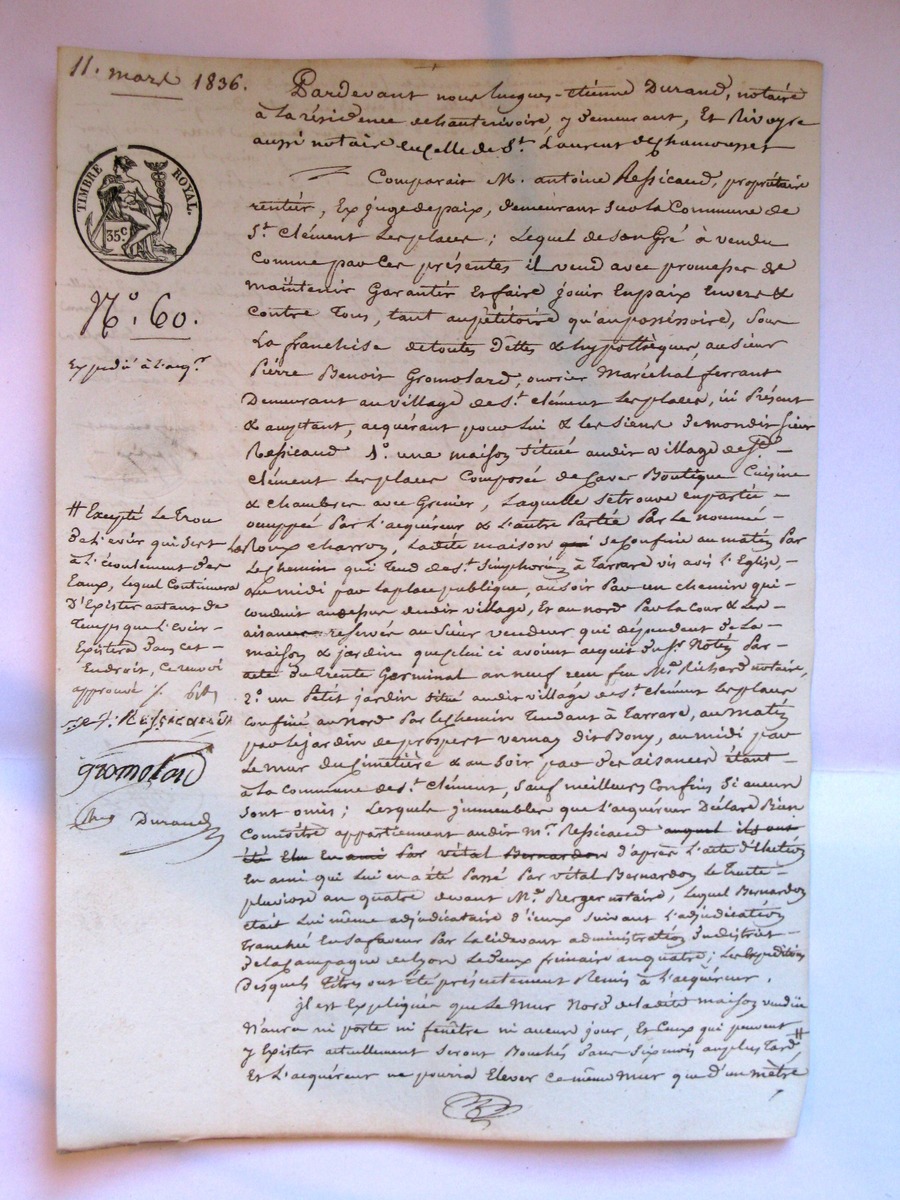 11. mars 1836.
Pardevant nous hugues-étienne Durand, notaire
à la résidence de hauterivoire y demeurant, Et Rivoyre
aussi notaire en celle de St. Laurent de Chamousset
Comparait M. antoine Ressicaud, propriétaire
rentier, Ex juge de paix, demeurant sur la Commune de
St. Clément Les places; Lequel de son Gré à vendu
Comme par Ces présentes il vend avec promesses de
maintenir Garantir Et faire jouir En paix Envers &
Contre Tous, tant au pétitoire qu'au possessoire, Sous
La franchise de toutes Dettes & hypothèques, au sieur
Pierre Benoit Gromolard, ouvrier Maréchal ferrant
Demeurant au village de St. Clément Les places, ici Présent
& acceptant, acquérant pour Lui & Les Siens de mondit Sieur
Ressicaud 1°. une maison Située audit village de St.
Clément Les places Composée de Caves Boutique Cuisine
& chambres avec Grenier, Laquelle se trouve en partie
occuppée Par L'acquéreur & L'autre Partie Par Le nommé
Roux charron, Ladite maison qui se Confine au matin Par
Le Chemin qui Tend de St. Simphorien à Tarrare vis avis L'Eglise,
au midi par La place publique, au soir Par un chemin qui
conduit au dessus dudit village, Et au nord Par La Cour & Les
aisances réservées au Sieur vendeur, qui dépendent de La
maison & jardin que celui ci avoient acquis du Sr. Notin Par
acte du Trente Germinal an neuf reçu feu Me. Richard notaire,
2°. un Petit jardin situé audit village de St. Clément Les places
Confiné au Nord Par Le Chemin Tendant à Tarrare, au matin
par Le jardin de prospert vernay dit Bony, au midi par
Le mur du Cimetière & au Soir par des aisances étant
à La Commune de St. Clément, Sauf meilleurs Confins Si aucun
Sont omis; Lesquels jmmeubles que L'acquéreur Déclare Bien
Connoître appartiennent audit Mr. Ressicaud auquel ils ont
été Elu En ami Par vital Bernardon d'après L'acte d'Election
En ami qui Lui en a été Passé Par vital Bernardon Le Trente
pluviose an quatre devant Me. Berger notaire, Lequel Bernardon
était Lui même adjudicataire d'iceux Suivant L'adjudication
Tranchée En sa faveur Par La cidevant administration du district
de La Campagne de Lyon Le Deux frimaire an quatre; Les Expéditions
Desquels Titres ont été présentement Remis à L'acquéreur.
jl est Expliqué que Le Mur Nord de Ladite maison vendüe
N'aura ni porte ni fenêtre ni aucun jour, Et Ceux qui peuvent
y Exister actuellement Seront Bouchés Dans Six mois au plus Tard #
Et L'acquéreur ne pourra Elever Ce même Mur que d'un mètre
TIMBRE ROYAL.
35c.
N°. 60.
Expédié à L'acqr.
# Excepté Le Trou
de L'evier qui sert
à L'écoulement des
Eaux, Lequel Continuera
D'Exister autant de
Temps que L'evier
Existera Dans Cet
Endroit, Ce renvoi
approuvé
Ressicaud
gromolard
Durand